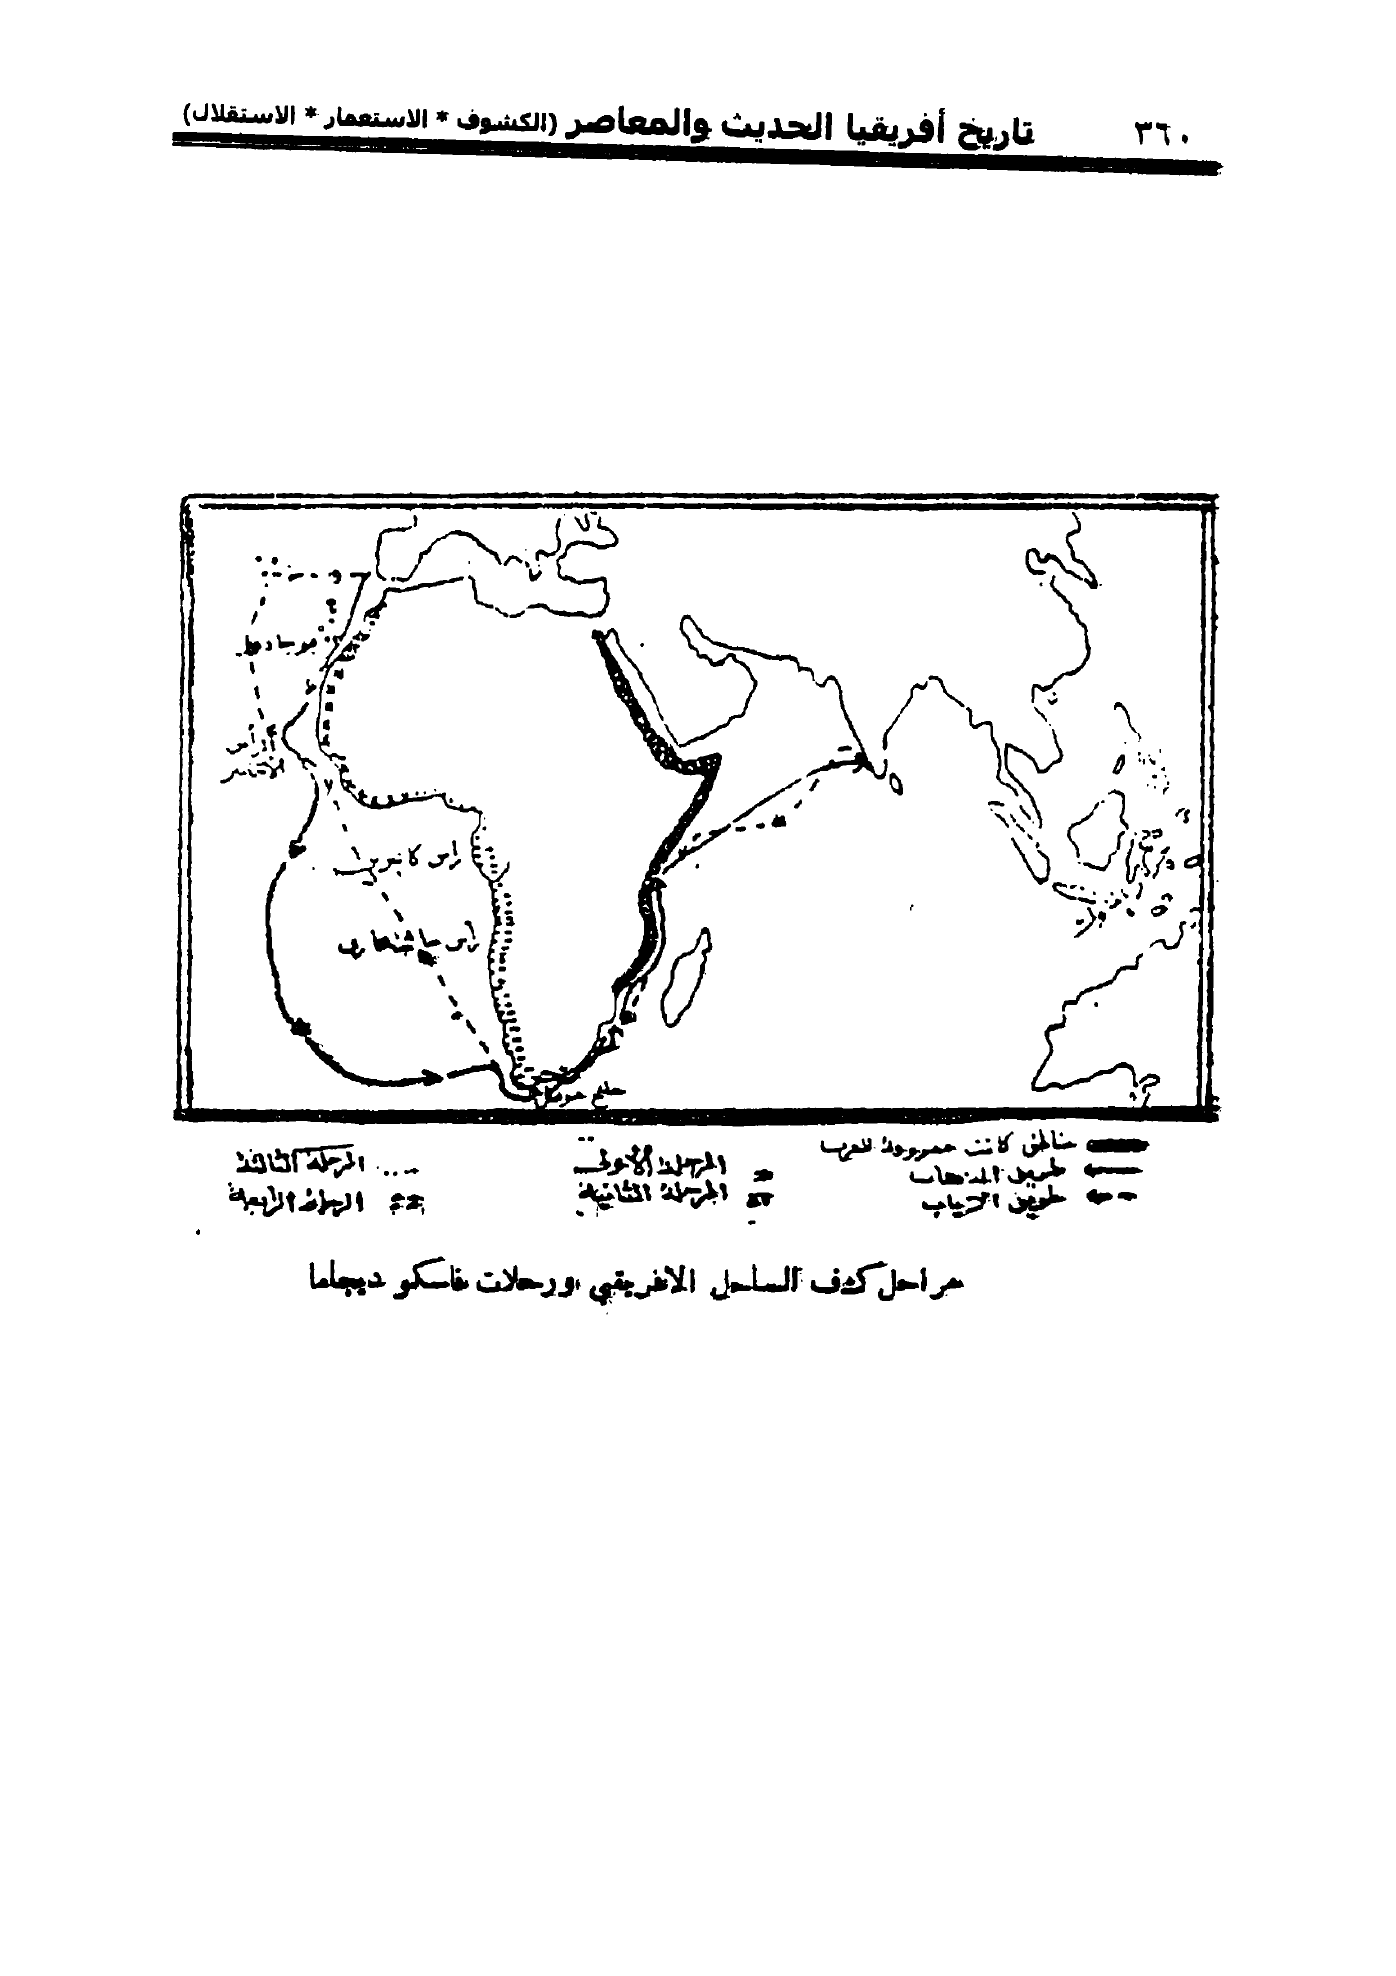 ٣٦٠ تاريخ أفريقيا الحديث والمعاصر (الكشوف * الاستعمار * الاستقلال)
الرأس
الأخضر
رأس
رأس
خليج
مناطق كانت معروفة للعرب
طريق الذهاب
طريق الاياب
المرحلة الأولى
المرحلة الثانية
المرحلة الثالثة
المرحلة الرابعة
مراحل كشف الساحل الافريقي ورحلات فاسكو ديجاما